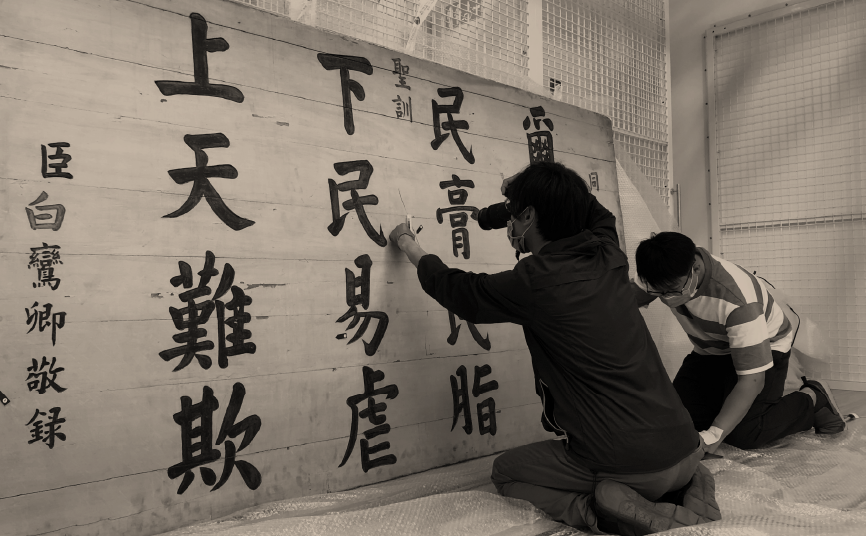 同
爾
民膏民脂
聖訓
下民易虐
上天難欺
臣白鸞卿敬録